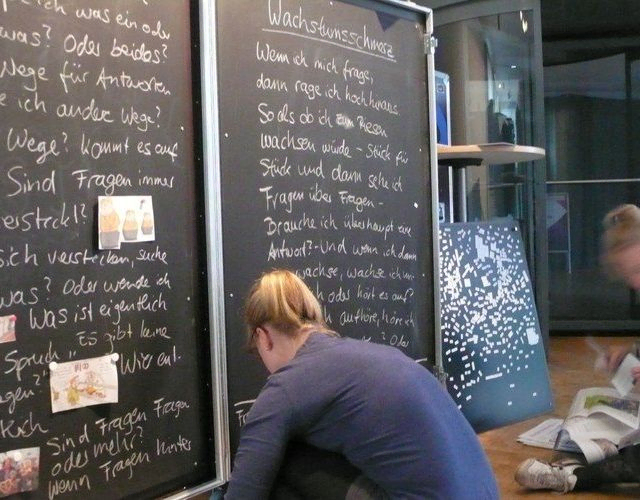 ich was ein oder
was? Oder beides?
Wege für Antworten
ich andere Wege?
Wege? kommt es auf
Sind Fragen immer
versteckt?
sich verstecken, suche
was? Oder wende ich
Was ist eigentlich
Es gibt keine
Spruch
Sind Fragen Fragen
oder mehr?
Wenn Fragen hinter
Wachstumsschmerz
Wenn ich mich frage,
dann rage ich hoch hinaus.
So als ob ich zum Riesen
wachsen würde - Stück für
Stück und dann sehe ich
Fragen über Fragen -
Brauche ich überhaupt eine
Antwort? - Und wenn ich dann
wachse, wachse ich
oder hört es auf?
aufhöre, höre ich
? Oder